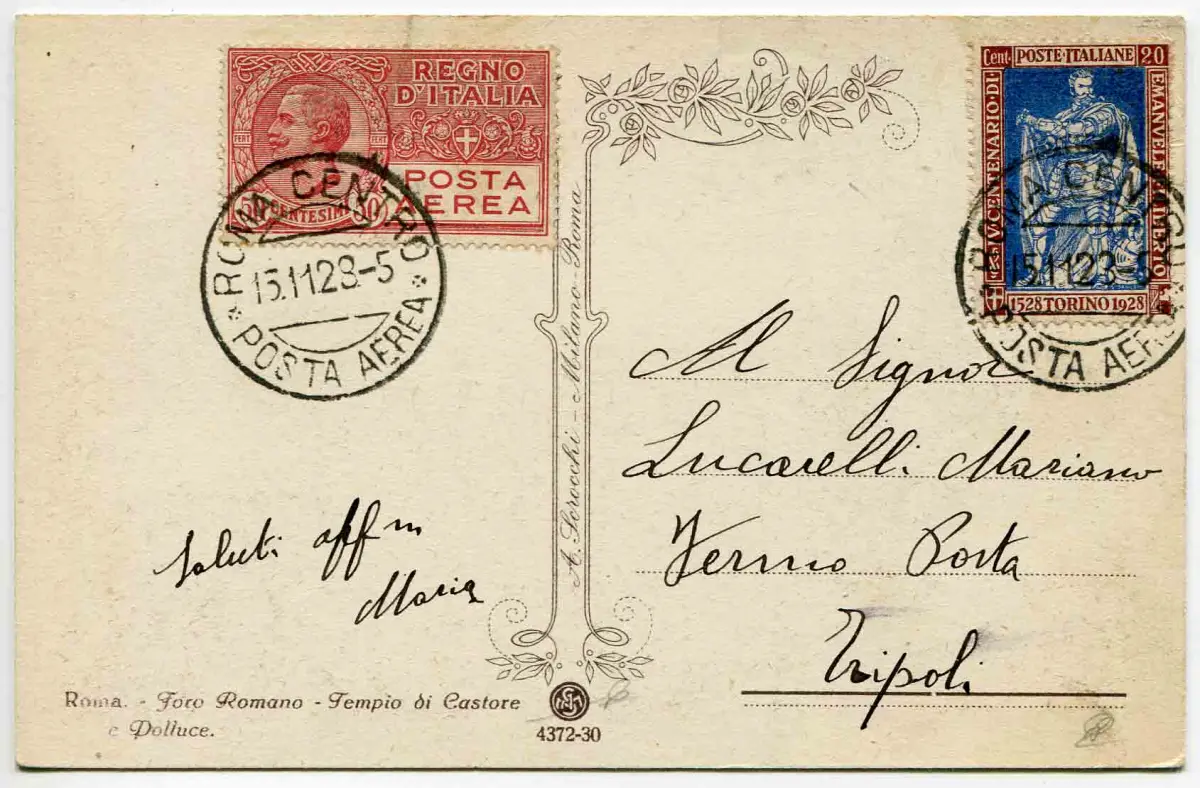 REGNO
D'ITALIA
POSTA
AEREA
CENTESIMI
ROMA CENTRO
15.11.28.-5
POSTA AEREA
Cent. POSTE·ITALIANE 20
IV·CENTENARIO·DI·
EMANVELE·FILIBERTO
1528 TORINO 1928
ROMA CENTRO
15.11.28-5
POSTA AEREA
A. Scrocchi - Milano-Roma
Al Signor
Lucarelli Mariano
Fermo Posta
Tripoli
Saluti aff mi
Maria
Roma. - Foro Romano - Tempio di Castore
e Polluce.
4372-30